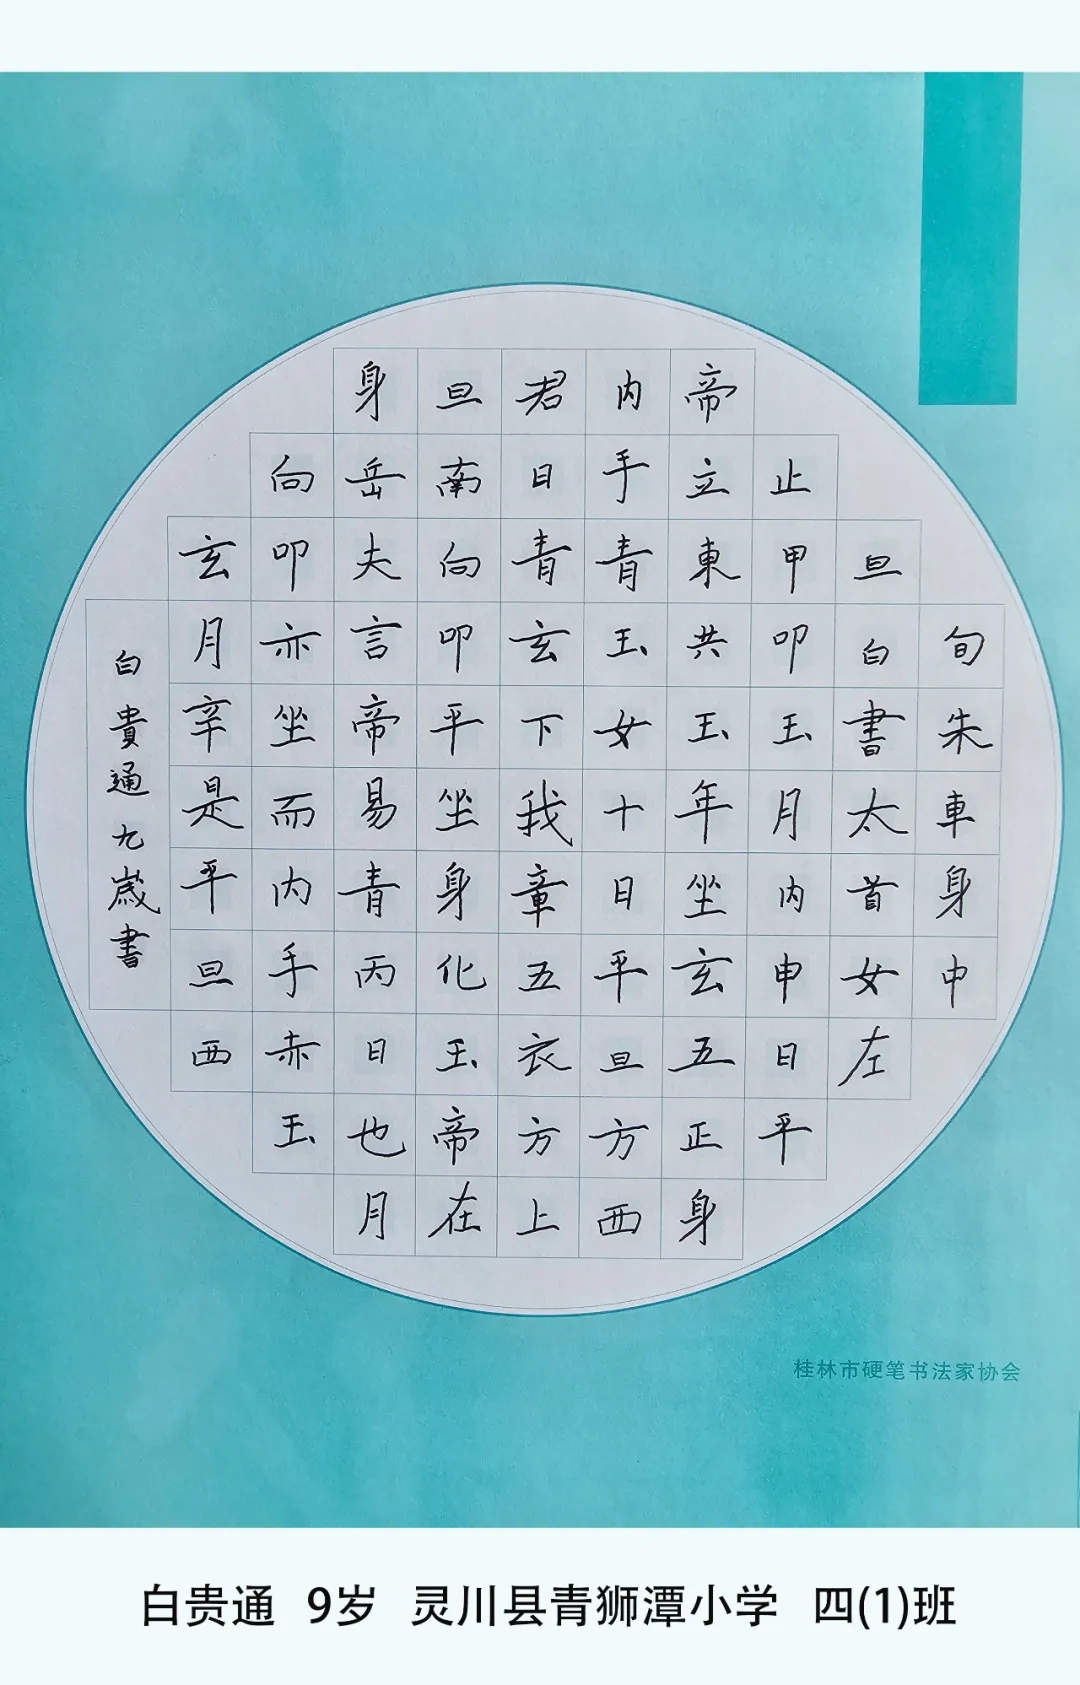 旬朱車身中
旦白書太首女左
止甲叩玉月内申日平
帝立東共玉年坐玄五正身
内手青玉女十日平旦方西
君日青玄下我章五衣方上
旦南向叩平坐身化玉帝在
身岳夫言帝易青丙日也月
向叩亦坐而内手赤玉
玄月辛是平旦西
白貴通九歲書
桂林市硬笔书法家协会
白贵通 9岁 灵川县青狮潭小学 四(1)班